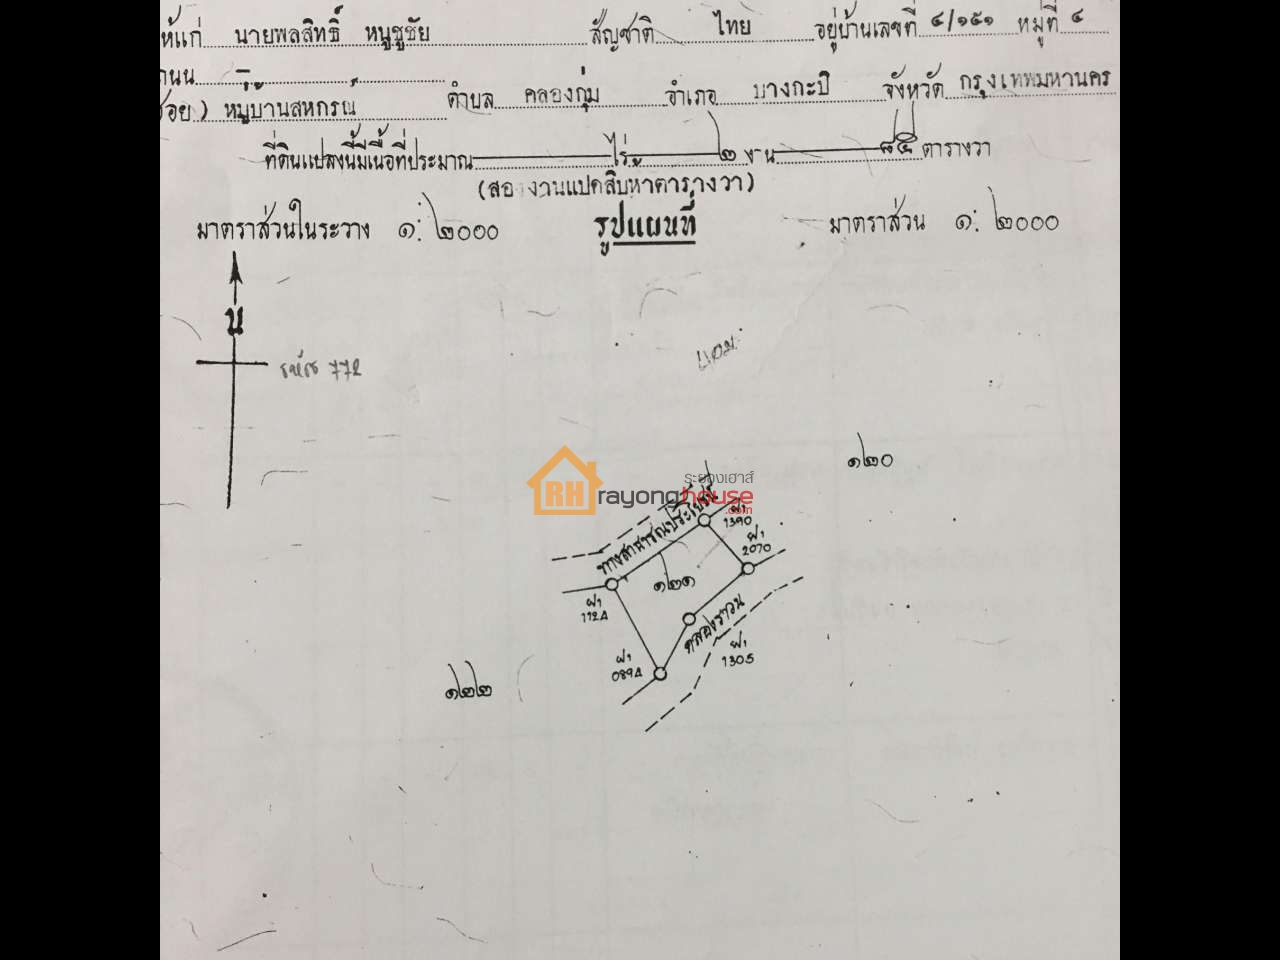 ให้แก่ นายพลสิทธิ์ หนูชูชัย สัญชาติ ไทย อยู่บ้านเลขที่ ๔/๑๕๑ หมู่ที่ ๔
ถนน –
ซอย) หมู่บ้านสหกรณ์ ตำบล คลองกุ่ม อำเภอ บางกะปิ จังหวัด กรุงเทพมหานคร
ที่ดินแปลงนี้มีเนื้อที่ประมาณ ไร่ ๒ งาน ๘๕ ตารางวา
(สองงานแปดสิบห้าตารางวา)
มาตราส่วนในระวาง ๑:๒๐๐๐ รูปแผนที่ มาตราส่วน ๑:๒๐๐๐
น
รหัส 772
๑๒๐
ระยองเฮาส์
RH rayonghouse
.com
ทางสาธารณประโยชน์
ฝ1
1390
ฝ1
2070
๑๒๑
ฝ1
1124
คลองราวน
ฝ1
1305
ฝ1
0894
๑๒๒